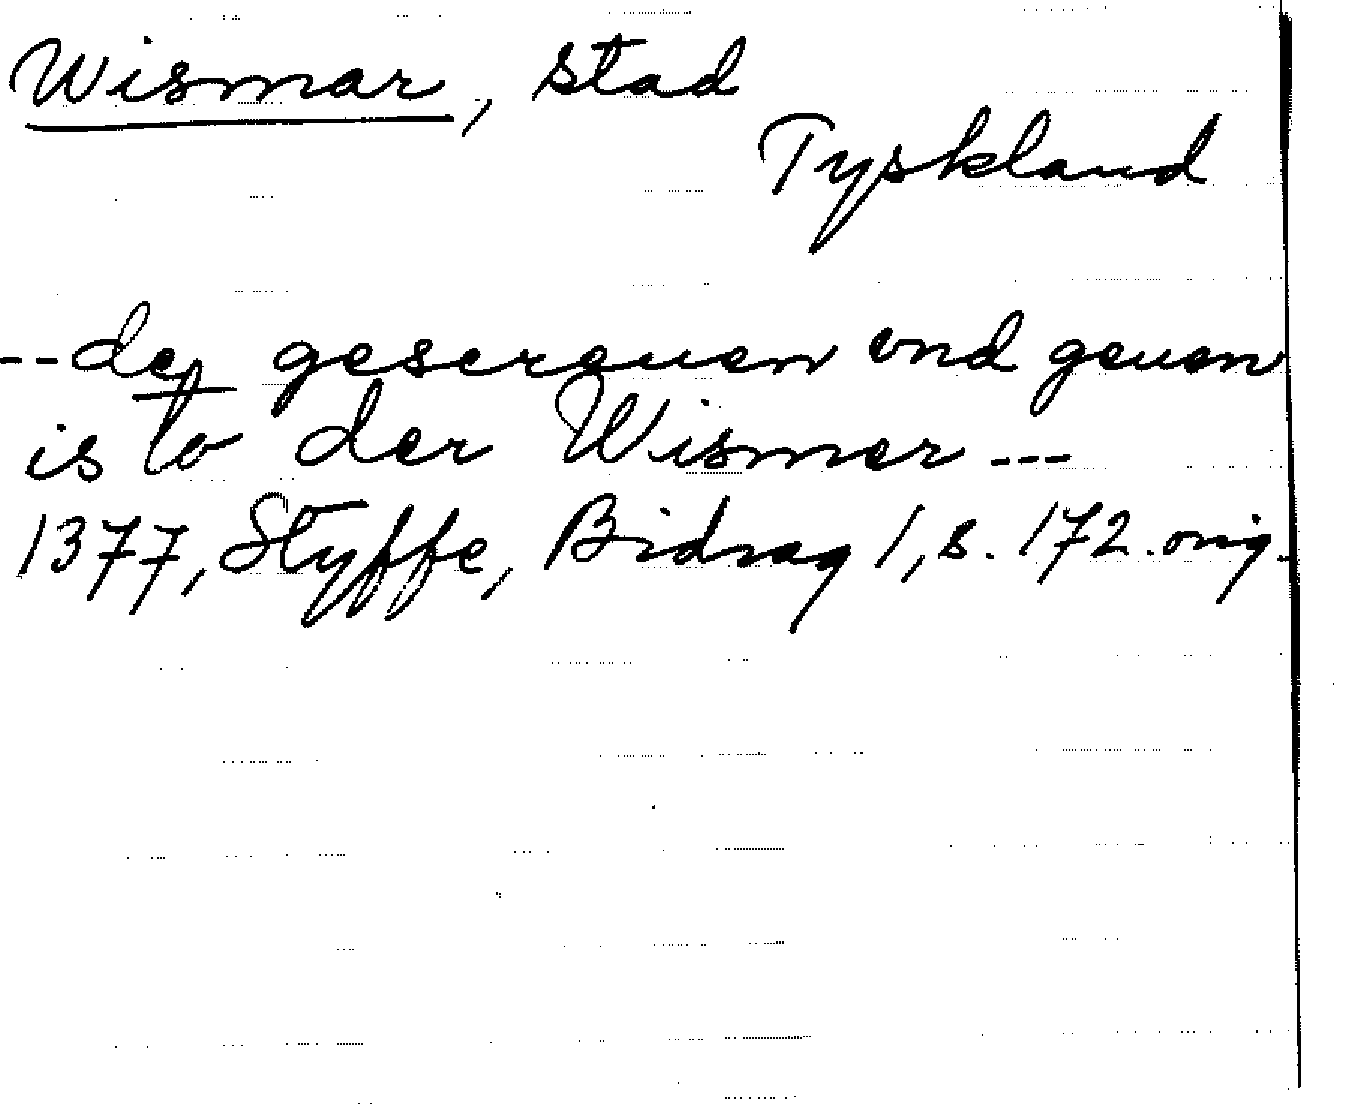 Wismar, stad
Tyskland
-- de gescreuen vnd geuen
is to der Wismer ---
1377, Styffe, Bidrag 1, s. 172. orig.